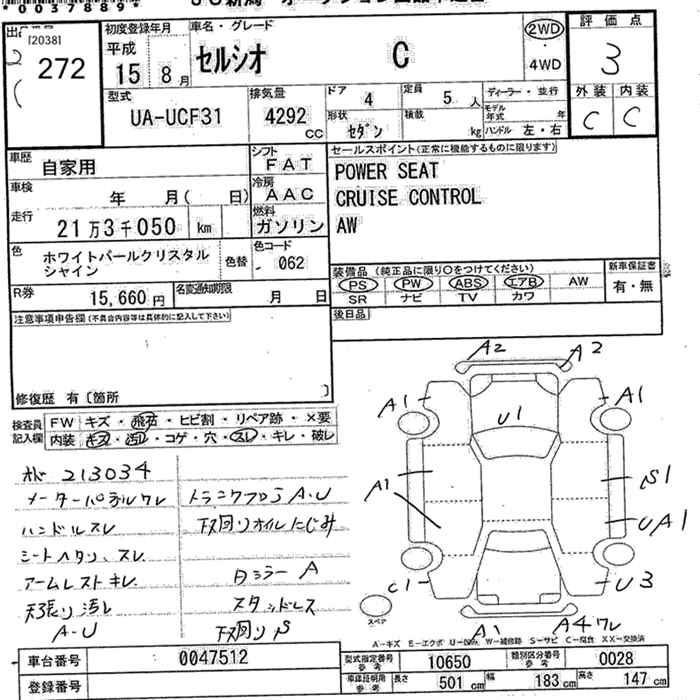 *0037889*
[2038]
272
初度登録年月
平成
15年8月
車名・グレード
セルシオ C
2WD
・
4WD
評価点
3
外装 内装
C C
型式
UA-UCF31
排気量
4292 CC
ドア 4
定員 5 人
形状 セダン
積載 kg
ディーラー・並行
モデル年式 年
ハンドル 左・右
車歴 自家用
シフト FAT
車検 年 月( 日)
冷房 AAC
走行 21万3千050 km
燃料 ガソリン
色 ホワイトパールクリスタル
シャイン
色替
色コード
062
R券 15,660円
名変通知期限 月 日
セールスポイント(正常に機能するものに限ります)
POWER SEAT
CRUISE CONTROL
AW
装備品(純正品に限り○をつけてください)
PS PW ABS エアB AW
SR ナビ TV カワ
新車保証書
有・無
後日品
注意事項申告欄(不具合内容等は具体的に記入して下さい)
修復歴 有〔箇所 〕
検査員
記入欄
FW キズ・飛石・ヒビ割・リペア跡・×要
内装 キズ・汚レ・コゲ・穴・スレ・キレ・破レ
213034
メーターパネルワレ
ハンドルスレ
シートヘタリ、スレ
アームレストキレ
天張り汚レ
A-U
トランクフロアA.U
下回りオイルにじみ
Bミラー A
スタッドレス
下回りS
A2 A2
A1 A1
U1
A1
S1
UA1
C1 U3
A1 A4ワレ
スペア
A-キズ E-エクボ U-凹み W-補修跡 S-サビ C-腐食 XX-交換済
車台番号 0047512
登録番号
型式指定番号
参考
10650
類別区分番号
参考
0028
車庫証明用
参考
長さ 501 cm 幅 183 cm 高さ 147 cm